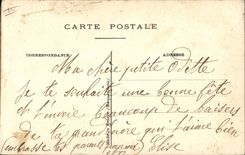 CARTE POSTALE
CORRESPONDANCE ADRESSE
Ma chère petite Odette
Je te souhaite une bonne fête
et t'envoie beaucoup de baisers
de ta grand mère qui t'aime bien
embrasse tes parents Elise